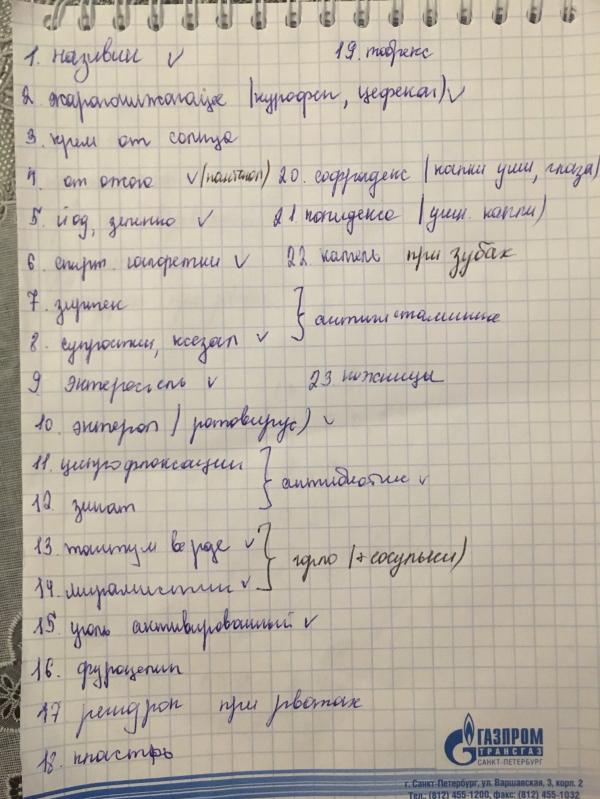 1. називин ✓
19. тобрекс
2. жаропонижающее (нурофен, цефекон) ✓
3. крем от солнца
4. от ожога ✓ (пантенол)
20. софрадекс (капли уши, глаза)
5. йод, зеленка ✓
21. полидекса (уши. капли)
6. спирт. салфетки ✓
22. камень при зубах
7. зиртек
8. супрастин, ксезал ✓
} антигистаминные
9. энтеросгель ✓
23 ножницы
10. энтерол (ротовирус) ✓
11. ципрофлоксацин
12. зинат
} антибиотик ✓
13. тантум верде ✓
14. мирамистин ✓
} горло (+ сосульки)
15 уголь активированный ✓
16. фурацилин
17 регидрон при рвотах
18. пластырь
ГАЗПРОМ
ТРАНСГАЗ
САНКТ-ПЕТЕРБУРГ
г. Санкт-Петербург, ул. Варшавская, 3, корп. 2
Тел.: (812) 455-1200, факс: (812) 455-1032